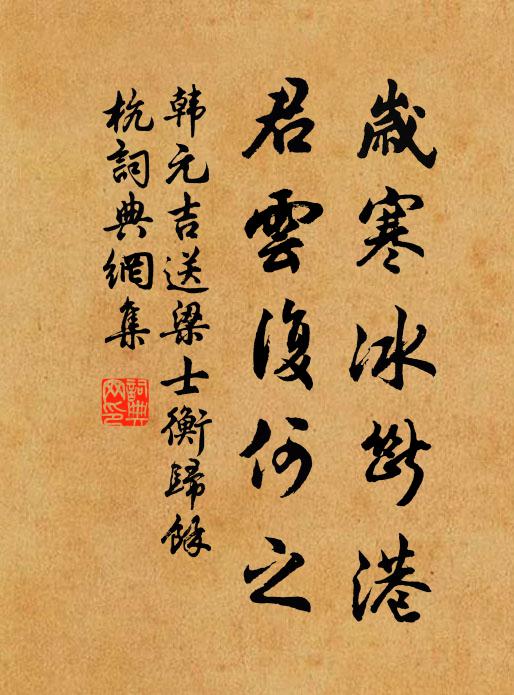 歲寒冰斷港
君雲復何之
韩元吉送梁士衡歸餘
杭詞典網集
詞典網印